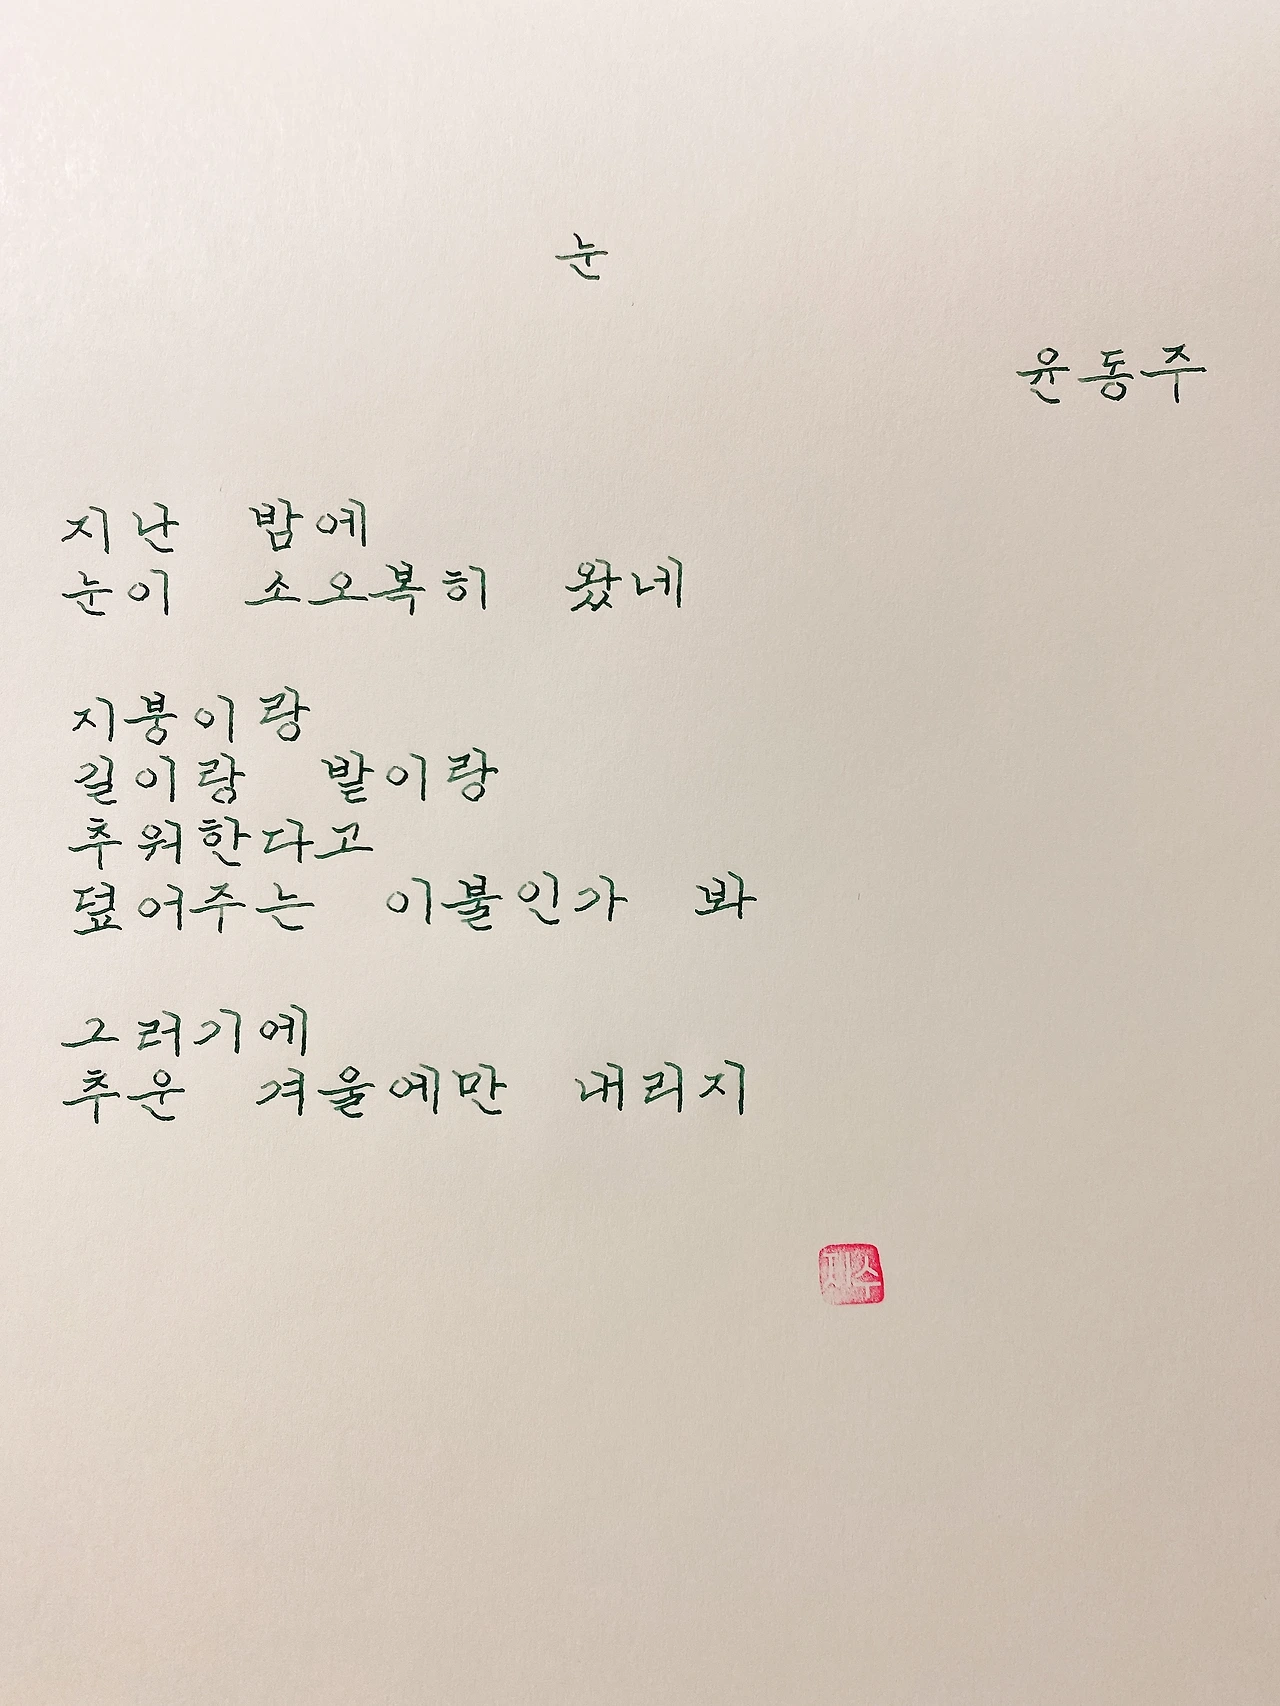 눈
윤동주
지난 밤에
눈이 소오복히 왔네
지붕이랑
길이랑 밭이랑
추워한다고
덮어주는 이불인가 봐
그러기에
추운 겨울에만 내리지
재수